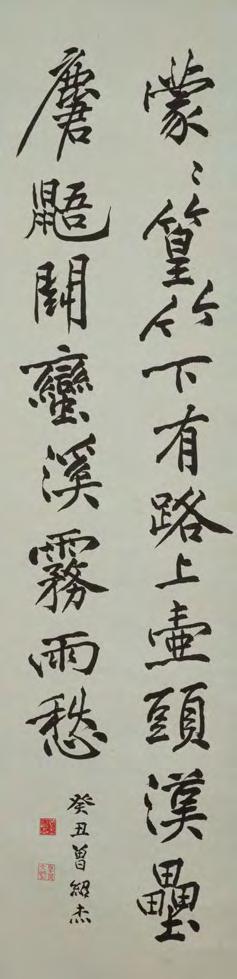 濛〻篁竹下有路上壺頭漢壘
麏鼯鬪蠻溪霧雨愁
癸丑曾紹杰